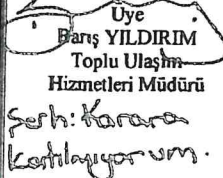 Üye
Barış YILDIRIM
Toplu Ulaşım
Hizmetleri Müdürü
Şerh: Karara
katılmıyorum.